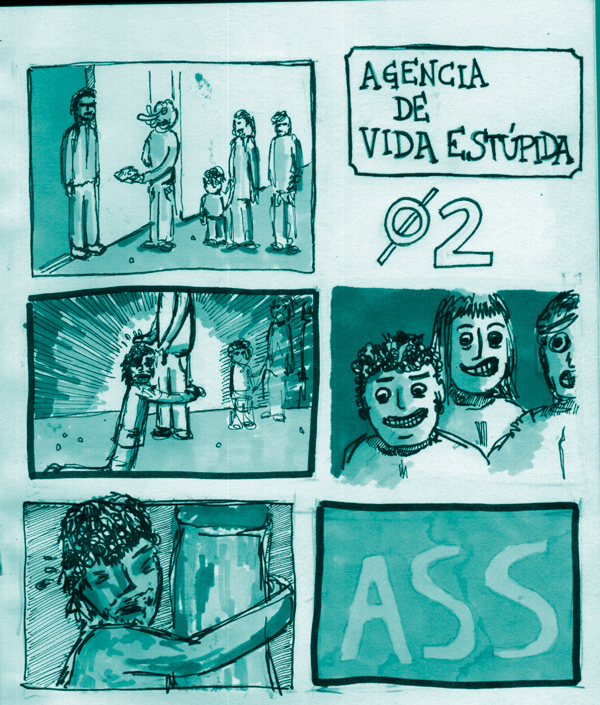 AGENCIA
DE
VIDA ESTÚPIDA
02
ASS